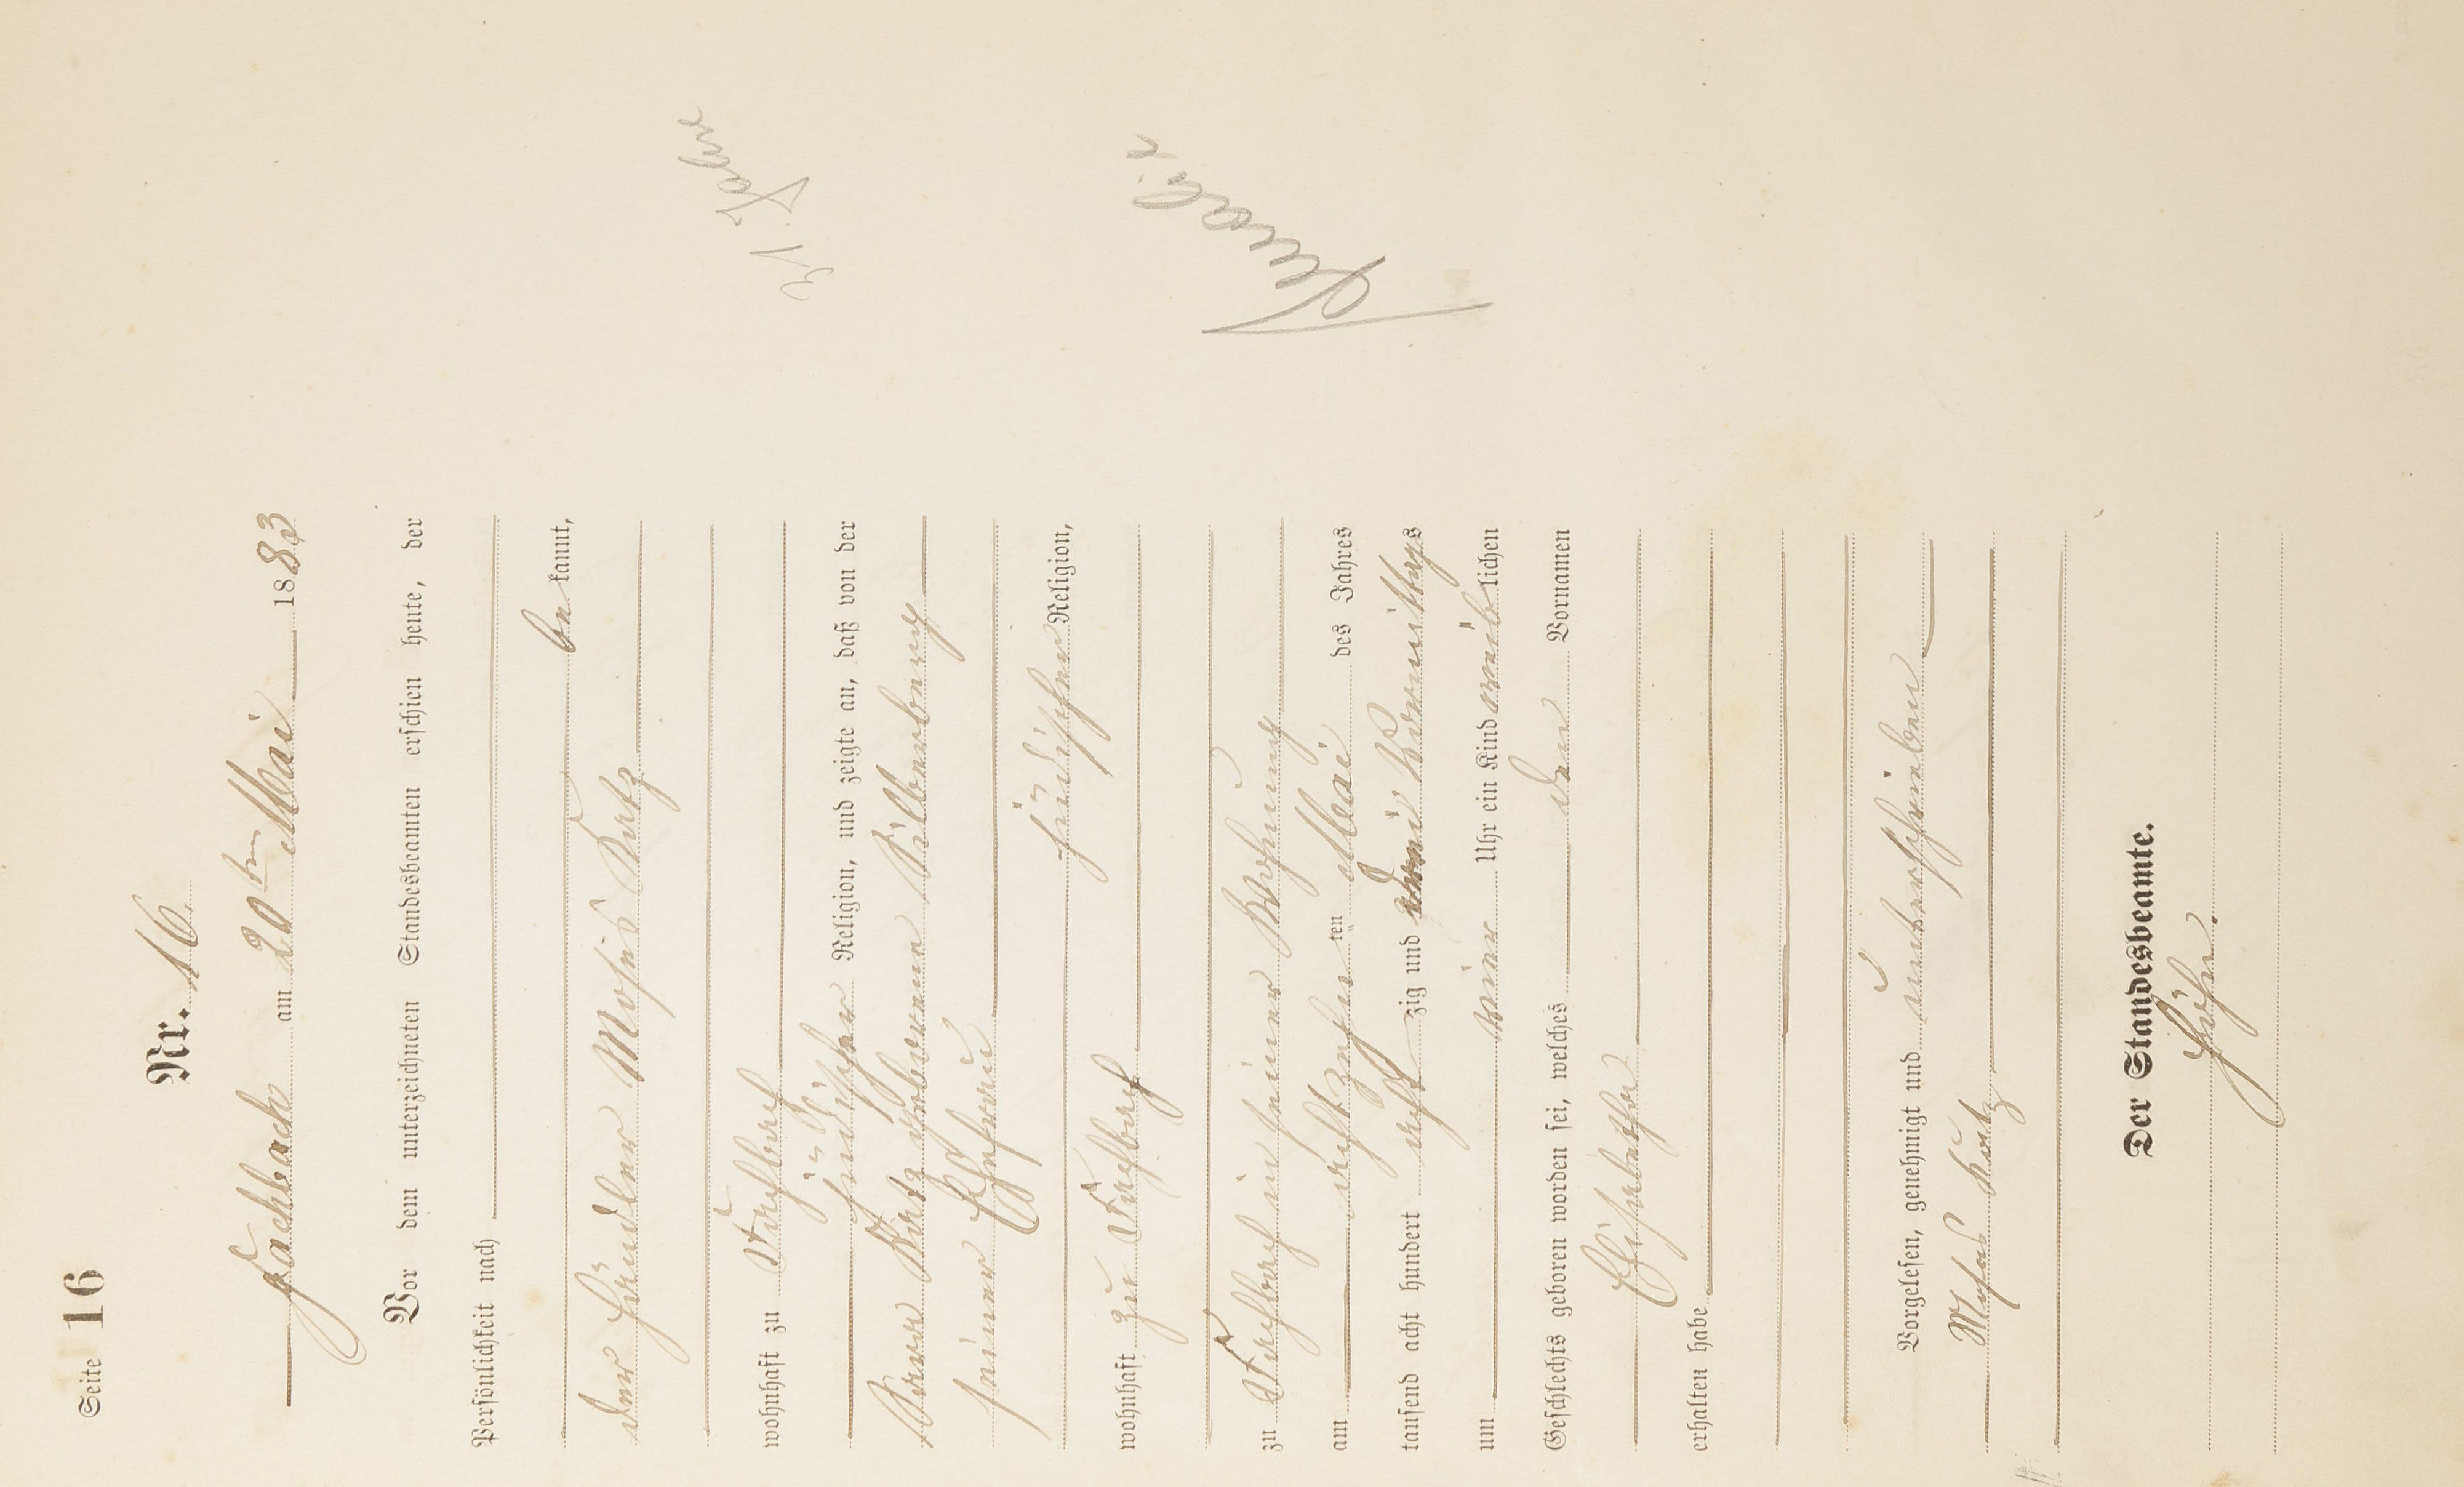 Seite 16
Nr. 16.
Fachbach am 20ten Mai 1883
Vor dem unterzeichneten Standesbeamten erschien heute, der
Persönlichkeit nach
bekannt,
der Händler Moses Kutz
wohnhaft zu Fachbach
jüdischer Religion, und zeigte an, daß von der
Sara Kutz geborene Silberberg
seiner Ehefrau
jüdischer Religion,
wohnhaft zu Fachbach
zu Fachbach in seiner Wohnung
am achtzehnten Mai des Jahres
tausend acht hundert achtzig und drei Vormittags
um Uhr ein Kind weiblichen
Geschlechts geboren worden sei, welches den Vornamen
Elisabetha
erhalten habe
Vorgelesen, genehmigt und unterschrieben
Moses Kutz
Der Standesbeamte.
Höhn.